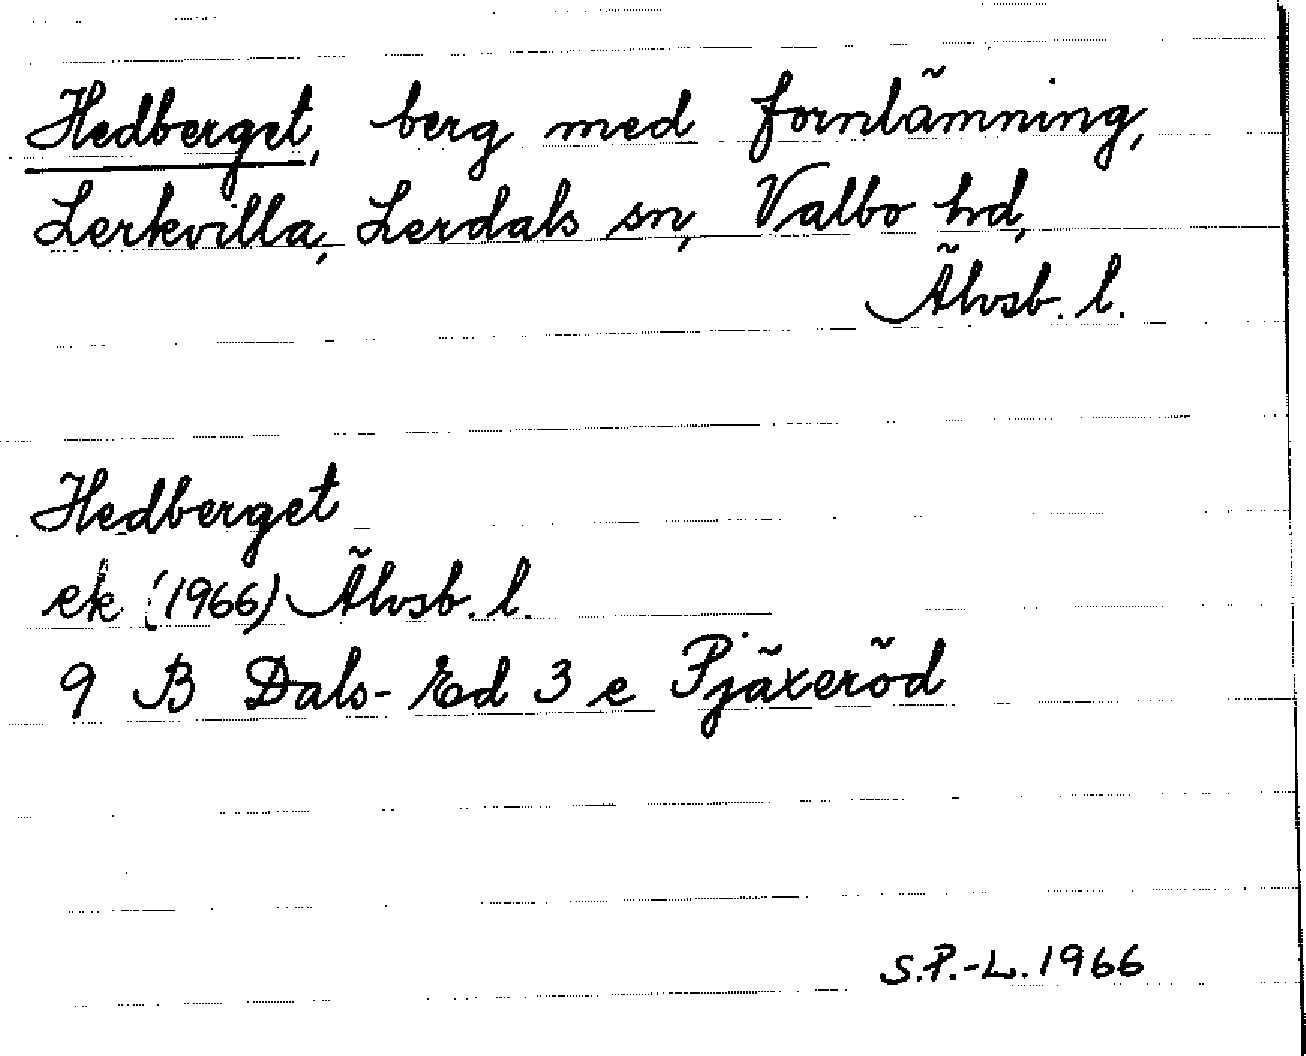 Hedberget, berg med fornlämning,
Lerkvilla, Lerdals sn, Valbo hd,
Älvsb. l.
Hedberget
ek (1966) Älvsb. l.
9 B Dals-Ed 3 e Pjäxeröd
S.P.-L. 1966